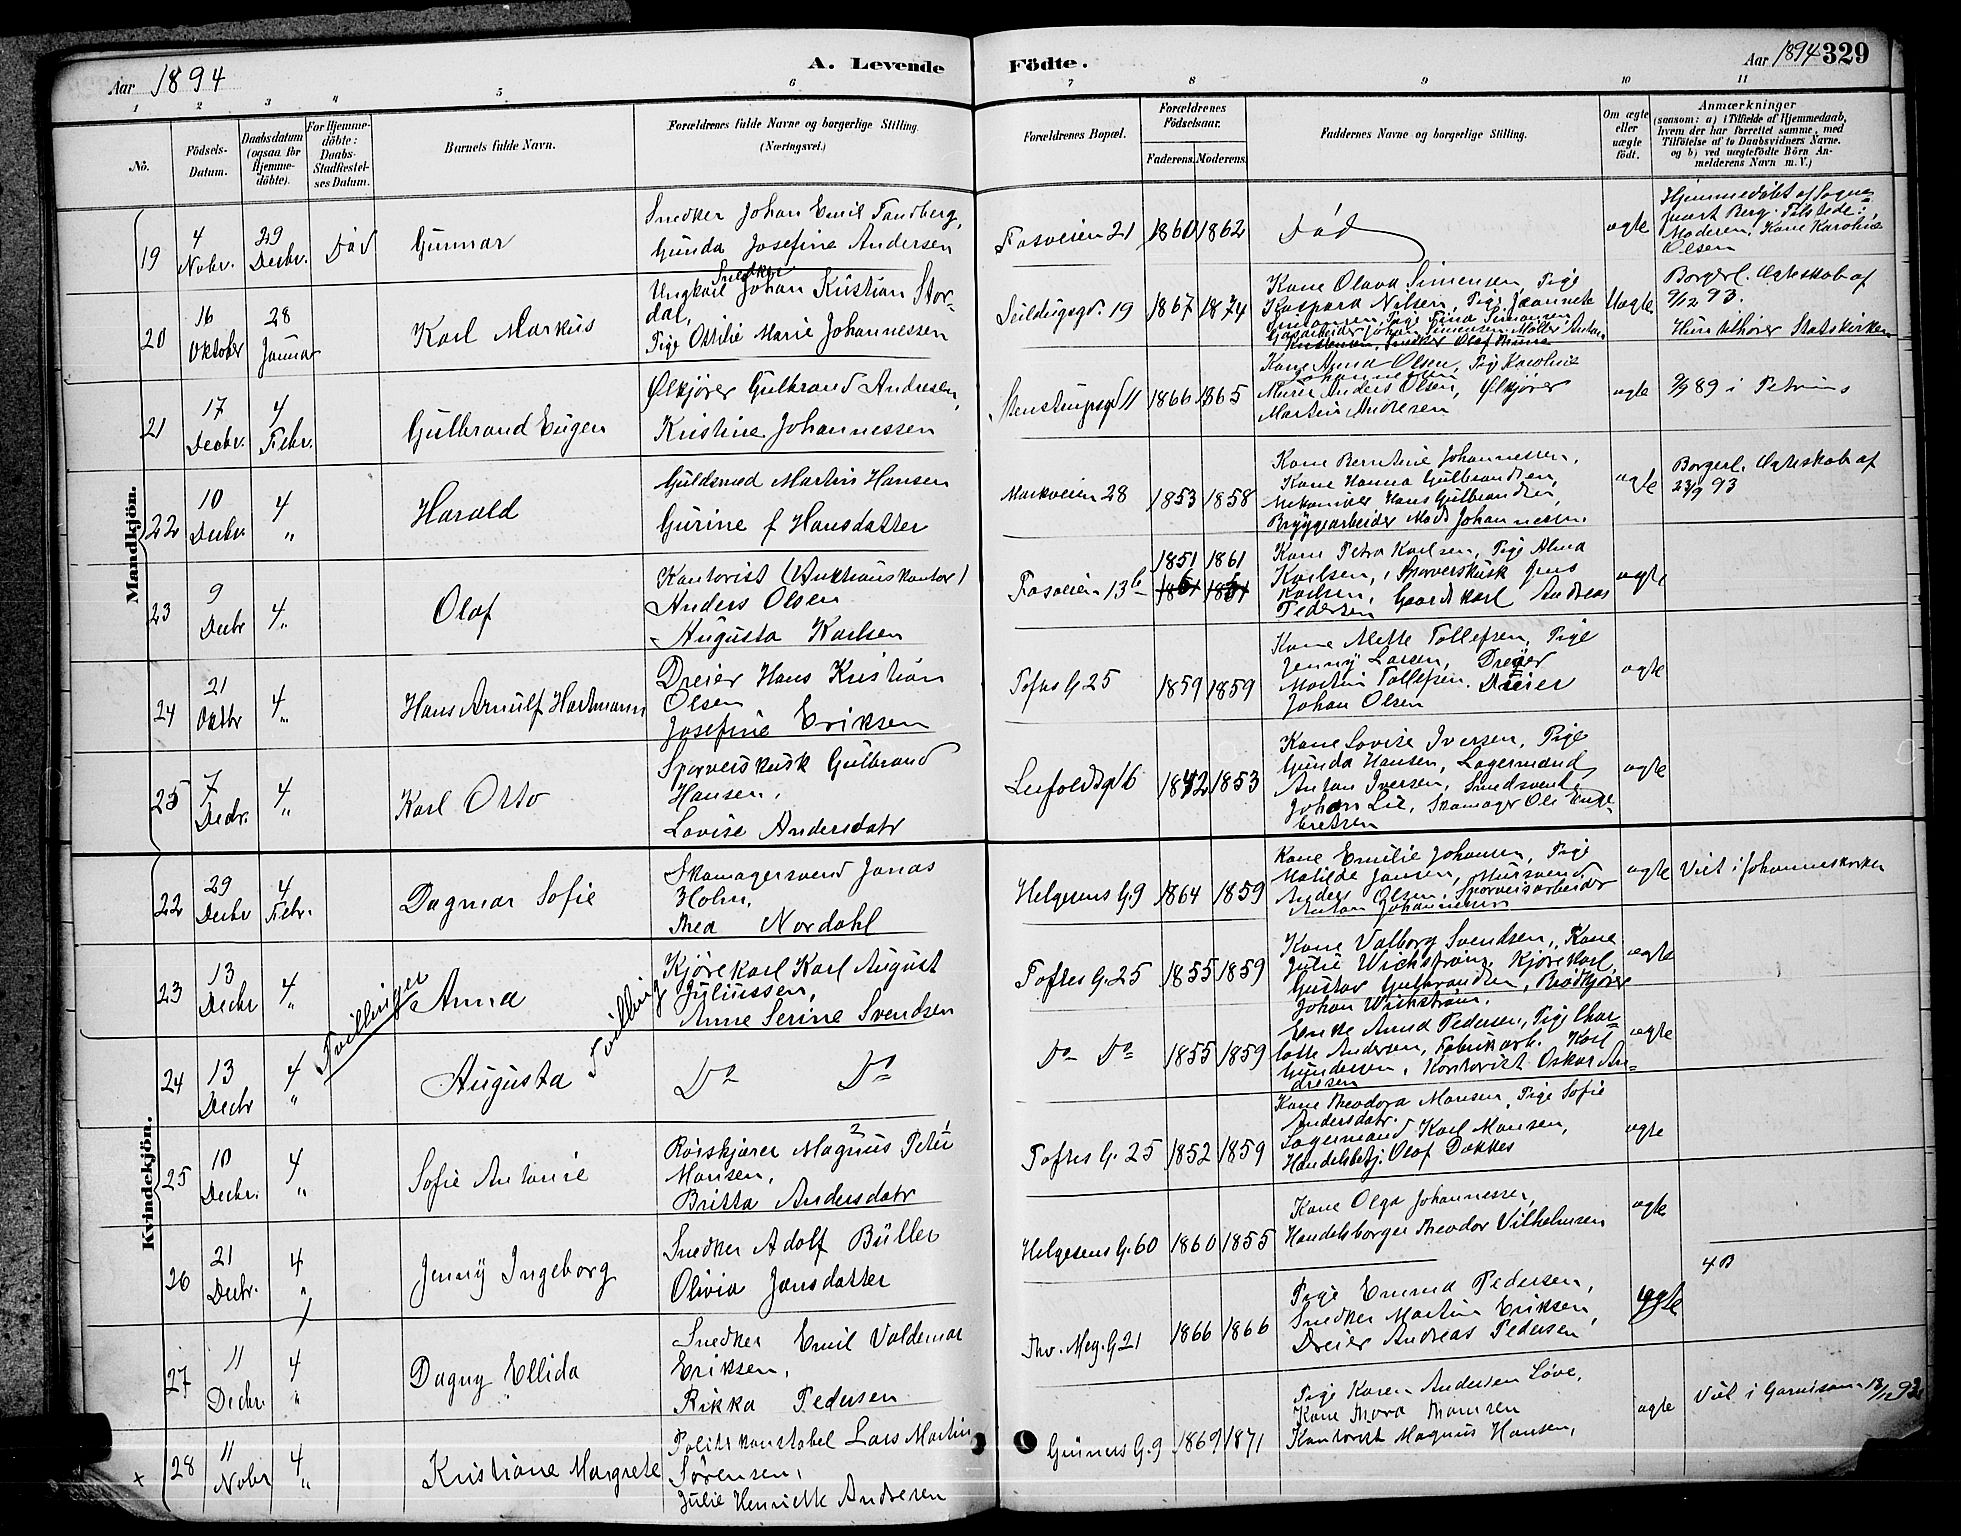 Aar 1894
A. Levende Födte.
Aar 1894 329
1 2 3 4 5 6 7 8 9 10 11
No.
Födsels-Datum.
Daabsdatum (ogsaa for Hjemme-döbte).
For Hjemme-döbte: Daabs-Stadfæstel-ses Datum.
Barnets fulde Navn.
Forældrenes fulde Navne og borgerlige Stilling.
(Næringsvei.)
Forældrenes Bopæl.
Forældrenes Födselsaar.
Faderens. Moderens.
Faddernes Navne og borgerlige Stilling.
Om ægte eller uægte födt.
Anmærkninger
(saasom: a) i Tilfælde af Hjemmedaab,
hvem der har forrettet samme, med
Tilföielse af to Daabsvidners Navne,
og b) ved uægtefödte Börn An-
melderens Navn m. V.)
Mandkjön.
19 4 Nobr. 29 Decbr. Död Gunnar
Snedker Johan Emil Tandberg,
Gunda Josefine Andersen
Fosveien 21 1860 1862 Död ægte
Hjemmedöbt af Sogne-
Berg. Tilstede:
Moderen, Kone Karoline
Olsen
20 16 Oktober 28 Januar Karl Markus
Snedker
Ungkarl Johan Kristian Stor-
dal,
Pige Ottilie Marie Johannessen
Seildugsgd. 19 1867 1874
Kone Olava Simensen, Pige
Kaspara Nilsen, Pige Jeannete
Uægte
Borgerl. Ægteskab af
9/12 93.
Hun tilhører Statskirken
21 17 Decbr. 4 Febr. Gulbrand Eugen
Ølkjører Gulbrand Andresen,
Kristine Johannessen
Stenstrupsgd 11 1866 1865
Kone Anna Olsen, Pige Karoline
Johannessen
Murer Anders Olsen, Ølkjører
Martin Andresen
ægte 89 i Petrus
22 10 Decbr. 4 " Harald
Guldsmed Martin Hansen
Gurine f Hansdatter
Markveien 28 1853 1858
Kone Berntine Johannessen,
Kone Hanna Gulbrandsen,
Mekaniker Hans Gulbrandsen,
Bryggearbeider Mads Johannessen.
ægte
Borgerl. Ægteskab af
23/9 93
23 9 Decbr 4 " Olaf
Kontorist (Auktionskontor)
Anders Olsen
Augusta Karlsen
Fosveien 13b 1851 1861
Kone Petra Karlsen, Pige Alma
Karlsen, Sporveiskusk Jens
Karlsen, Gaardskarl Andreas
Pedersen
ægte
24 21 Oktbr 4 " Hans Arnulf Hartmann
Dreier Hans Kristian
Olsen
Josefine Eriksen
Toftes G. 25 1859 1859
Kone Mette Tollefsen, Pige
Jenny Larsen, Dreier
Martin Tollefsen. Dreier
Johan Olsen
ægte
25 7 Decbr. 4 " Karl Otto
Sporveiskusk Gulbrand
Hansen,
Lovise Andersdatr
1842 1853
Kone Lovise Iversen, Pige
Gunda Hansen, Lagermand
Anton Iversen, Smedsvend
Johan Lie, Skomager Ole Enge-
bretsen
ægte
Kvindekjön.
22 29 Decbr 4 Febr. Dagmar Sofie
Skomagersvend Jonas
Holm,
Thea Nordahl
Helgesens G. 9 1864 1859
Kone Emilie Johansen, Pige
Matilde Jansen, Mursvend
Anders Olsen, Sporveisarbeider
Anton Johannessen
ægte Viet i Johanneskirken
23 13 Decbr 4 " Tvillinger Anna Tvilling
Kjørekarl Karl August
Juliussen,
Anne Serine Svendsen
Toftes G. 25 1855 1859
Kone Valborg Svendsen, Kone
Julie Wickstrøm, Kjørekarl
Gustav Gulbrandsen, Brødkjører
Johan Wickstrøm.
ægte
24 13 Decbr 4 " Augusta
Do Do
Do Do 1855 1859
Enke Anna Pedersen, Pige Char-
lotte Andersen, Fabrikarb. Karl
Gundersen, Kontorist Oskar An-
dresen
ægte
25 10 Decbr. 4 " Sofie Antonie
Magnus Peter
Monsen,
Britta Andersdatr
Toftes G. 25 1852 1859
Kone Theodora Monsen, Pige Sofie
Andersdatr.
Lagermand Karl Monsen,
Handelsbetj. Olaf Dokkes
ægte
26 21 Decbr. 4 " Jenny Ingeborg
Snedker Adolf Büller
Olivia Jonsdatter
Helgesens G. 60 1860 1855
Kone Olga Johannessen,
Handelsborger Theodor Vilhelmsen
ægte
27 11 Decbr. 4 " Dagny Ellida
Snedker Emil Valdemar
Eriksen,
Rikka Pedersen
Thv. Mey. G 21 1866 1866
Pige Emma Pedersen,
Snedker Martin Eriksen,
Dreier Andreas Pedersen
ægte 4 B
28 11 Nobr 4 " Kristiane Margrete
Politikonstabel Lars Martin
Sørensen,
Julie Henriette Andresen
Grüners G. 9 1869 1871
Pige Karen Andersen Löve,
Kone Thora Thomsen
Kontorist Magnus Hansen,
ægte Viet i Garnison 18/12 92